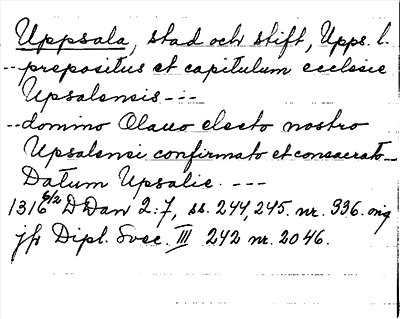 Uppsala, stad och stift, Upps. l.
-- prepositus et capitulum ecclesie
Upsalensis ---
-- domino Olauo electo nostro
Upsalensi confirmato et consecrato --
Datum Upsalie. ---
1316 6/2 D Dan 2:7, ss. 244, 245. nr. 336. orig
jfr Dipl. Svec. III 242 nr. 2046.